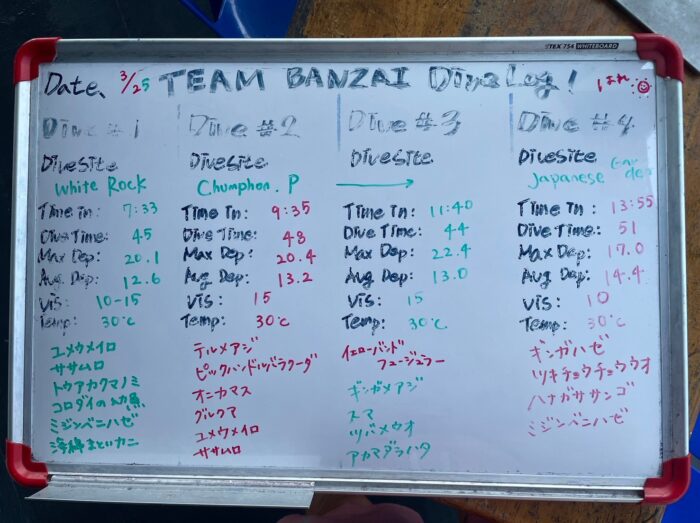 TEX 754 WHITEBOARD
Date、 3/25 TEAM BANZAI Dive Log! はれ
Dive #1
DiveSite
White Rock
Time In: 7:33
Dive Time: 45
Max Dep: 20.1
Avg Dep: 12.6
Vis: 10-15
Temp: 30℃
ユメウメイロ
ササムロ
トウアカクマノミ
コロダイの幼魚
ミジンベニハゼ
海綿まといカニ
Dive #2
DiveSite
Chumphon. P
Time In: 9:35
Dive Time: 48
Max Dep: 20.4
Avg Dep: 13.2
Vis: 15
Temp: 30℃
テルメアジ
ピックハンドルバラクーダ
オニカマス
グルクマ
ユメウメイロ
ササムロ
Dive #3
DiveSite
→
Time In: 11:40
Dive Time: 44
Max Dep: 22.4
Avg Dep: 13.0
Vis: 15
Temp: 30℃
イエローバンド
フュージュラー
ギンガメアジ
スマ
ツバメウオ
アカマダラハタ
Dive #4
DiveSite
Japanese Garden
Time In: 13:55
Dive Time: 51
Max Dep: 17.0
Avg Dep: 14.4
Vis: 10
Temp: 30℃
ギンガハゼ
ツキチョウチョウウオ
ハナガササンゴ
ミジンベニハゼ